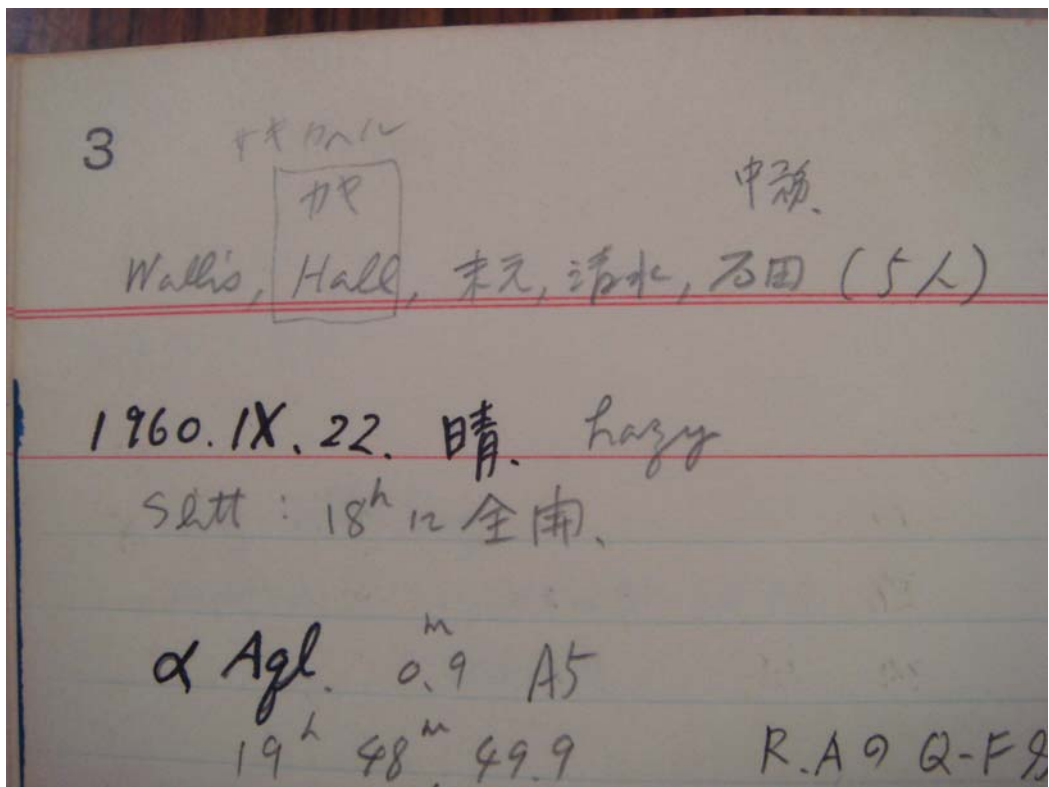 3
サキカヘル
カヤ
中
Wallis, Hall, 末元, 清水, 石田 (5人)
1960.IX.22. 晴. hazy
18ʰ に 全開.
α Aql. 0.9ᵐ A5
19ʰ 48ᵐ 49.9
R.Aの Q-F